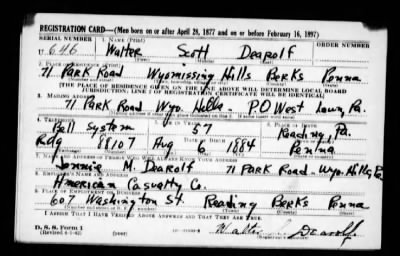 REGISTRATION CARD—(Men born on or after April 28, 1877 and on or before February 16, 1897)
SERIAL NUMBER 1. NAME (Print) ORDER NUMBER
U 646 Walter Scott Dearolf
2. PLACE OF RESIDENCE (Print)
71 Park Road Wyomissing Hills Berks Penna
[THE PLACE OF RESIDENCE GIVEN ON THE LINE ABOVE WILL DETERMINE LOCAL BOARD
JURISDICTION; LINE 2 OF REGISTRATION CERTIFICATE WILL BE IDENTICAL]
3. MAILING ADDRESS
71 Park Road Wyo. Hills. P.O West Lawn, Pa.
4. TELEPHONE 5. AGE IN YEARS 6. PLACE OF BIRTH
Bell System 57 Reading, Pa.
Rdg 88107 Aug 6 1884 Penna
7. NAME AND ADDRESS OF PERSON WHO WILL ALWAYS KNOW YOUR ADDRESS
Jennie M. Dearolf 71 Park Road - Wyo. Hills, Pa
8. EMPLOYER'S NAME AND ADDRESS
American Casualty Co.
9. PLACE OF EMPLOYMENT OR BUSINESS
607 Washington St. Reading Berks Penna
I AFFIRM THAT I HAVE VERIFIED ABOVE ANSWERS AND THAT THEY ARE TRUE.
D. S. S. Form 1
(Revised 4-1-42) (over)